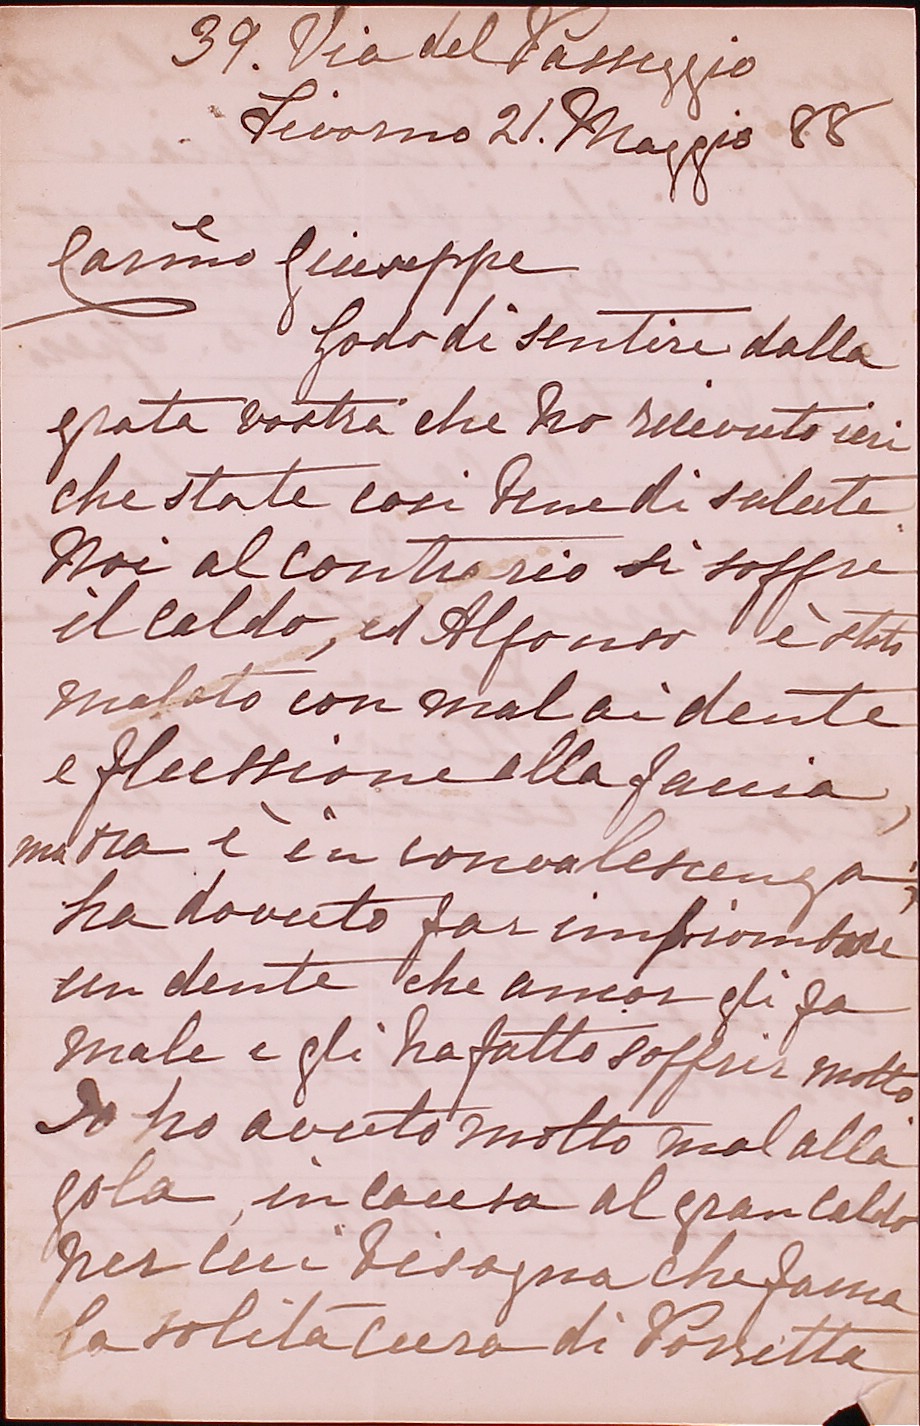 39. Via del Passeggio
Livorno 21. Maggio 88
Carmo e Giuseppe
Godo di sentire dalla
grata vostra che ho ricevuto ieri
che state cosi bene di salute.
Noi al contrario si soffre
il caldo, ed Alfonso è stato
malato con mal ai dente
e flussione alla faccia,
ma ora è in convalescenza;
ha dovuto far impiombare
un dente che ancor gli fa
male e gli ha fatto soffrir molto.
Io ho avuto molto mal alla
gola, in causa al gran caldo
per cui bisogna che faccia
la solita cura di Porretta